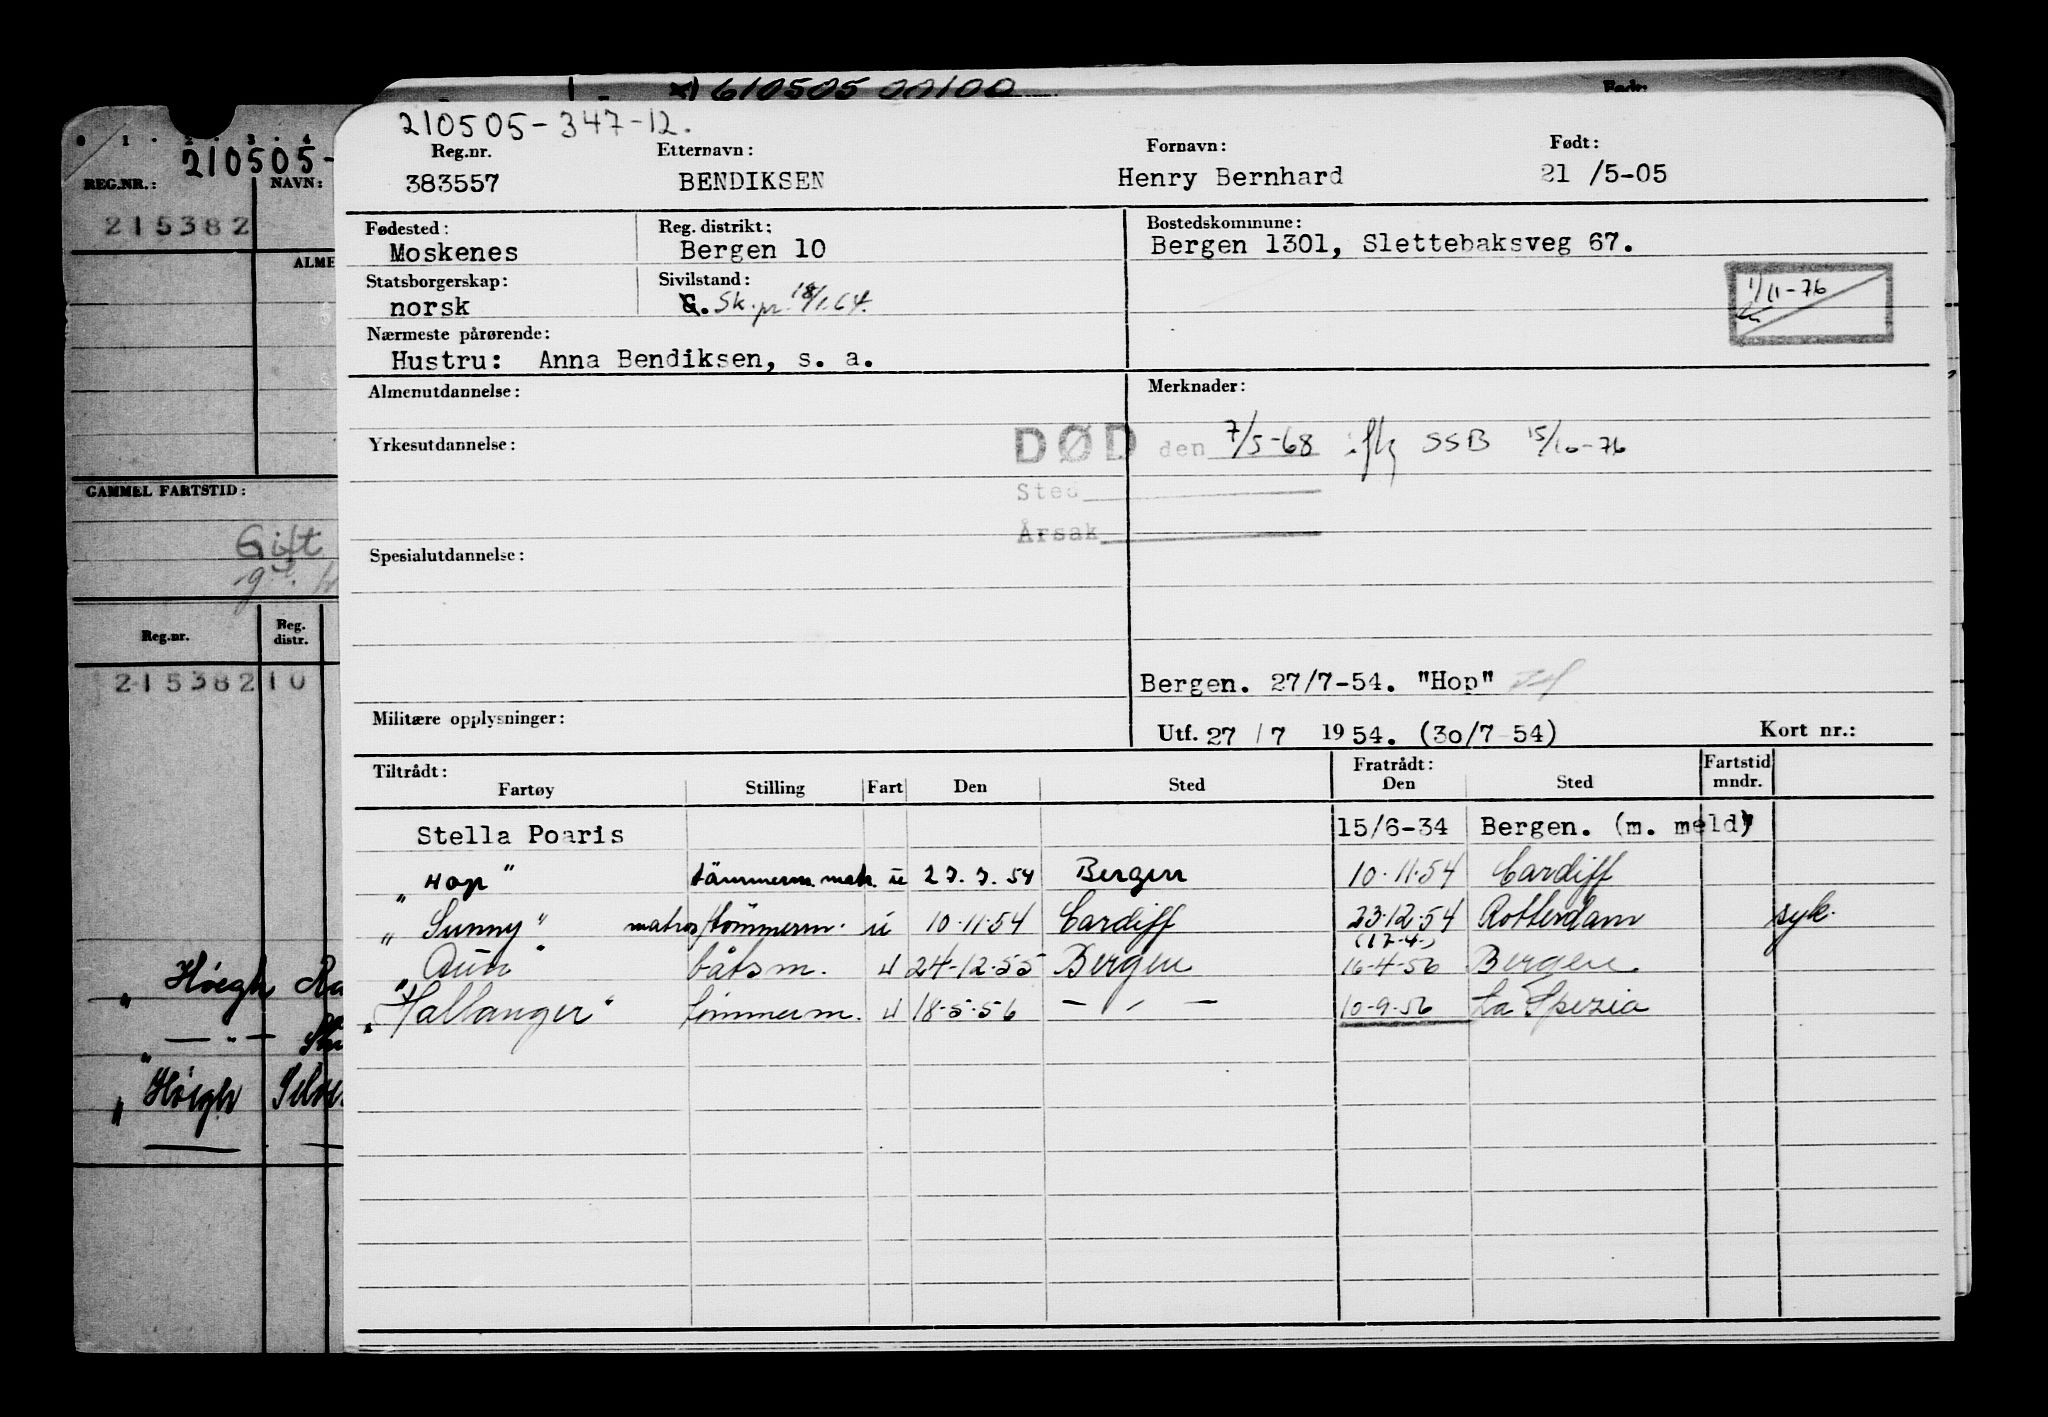 610505 00100
Født:
210505-347-12.
Reg.nr. Etternavn: Fornavn: Født:
383557 BENDIKSEN Henry Bernhard 21 /5-05
Fødested: Reg. distrikt: Bostedskommune:
Moskenes Bergen 10 Bergen 1301, Slettebaksveg 67.
Statsborgerskap: Sivilstand:
norsk G. Sk. pr. 18/1.64.
1/11-76
Nærmeste pårørende:
Hustru: Anna Bendiksen, s. a.
Almenutdannelse: Merknader:
Yrkesutdannelse: DØD den 7/5-68 iflg SSB 15/10-76
Sted
Årsak
Spesialutdannelse:
Bergen. 27/7-54. "Hop"
Militære opplysninger: Utf. 27 / 7 1954. (30/7-54) Kort nr.:
Tiltrådt: Fratrådt: Fartstid
Fartøy Stilling Fart Den Sted Den Sted mndr.
Stella Poaris 15/6-34 Bergen. (m. meld)
"Hop" tømmerm. matr. u 27.7.54 Bergen 10-11-54 Cardiff
"Sunny" matros/tømmerm. u 10-11-54 Cardiff 23-12-54 Rotterdam syk.
(17-4-)
båtsm. u 24-12-55 Bergen 16-4-56 Bergen
"Hallanger" tømmerm. u 18-5-56 — " — 10-9-56 La Spezia
0 1 2 3 4
210505-
REG.NR.: NAVN:
215382
ALME
GAMMEL FARTSTID:
Gift
Reg.nr. Reg. distr.
215382 10
" Høegh
" — " —
" Høegh